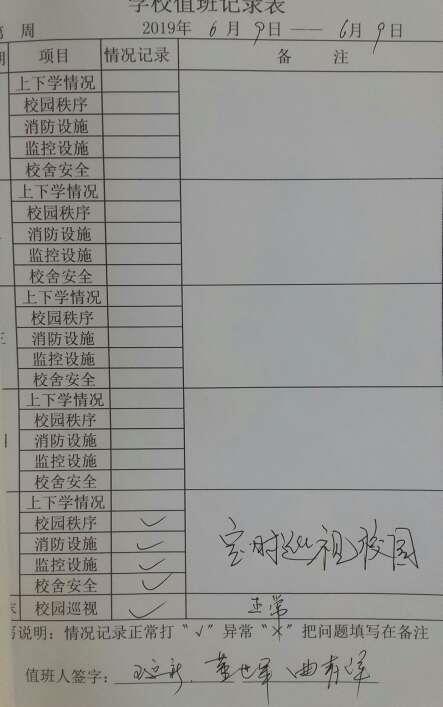 学校值班记录表
周 2019年 6 月 9 日 —— 6 月 9 日
期 项目 情况记录 备 注
上下学情况
校园秩序
消防设施
监控设施
校舍安全
上下学情况
校园秩序
消防设施
监控设施
校舍安全
上下学情况
校园秩序
消防设施
监控设施
校舍安全
上下学情况
校园秩序
消防设施
监控设施
校舍安全
上下学情况
校园秩序 ✓
消防设施 ✓ 定时巡视校园
监控设施 ✓
校舍安全 ✓
校园巡视 ✓ 正常
写说明：情况记录正常打“√”异常“×”把问题填写在备注
值班人签字： 董世军